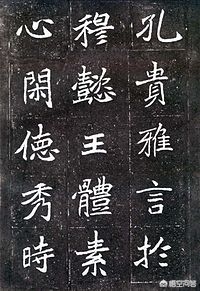 孔貴雅言於
穆懿王體素
心閑德秀時
悟空问答